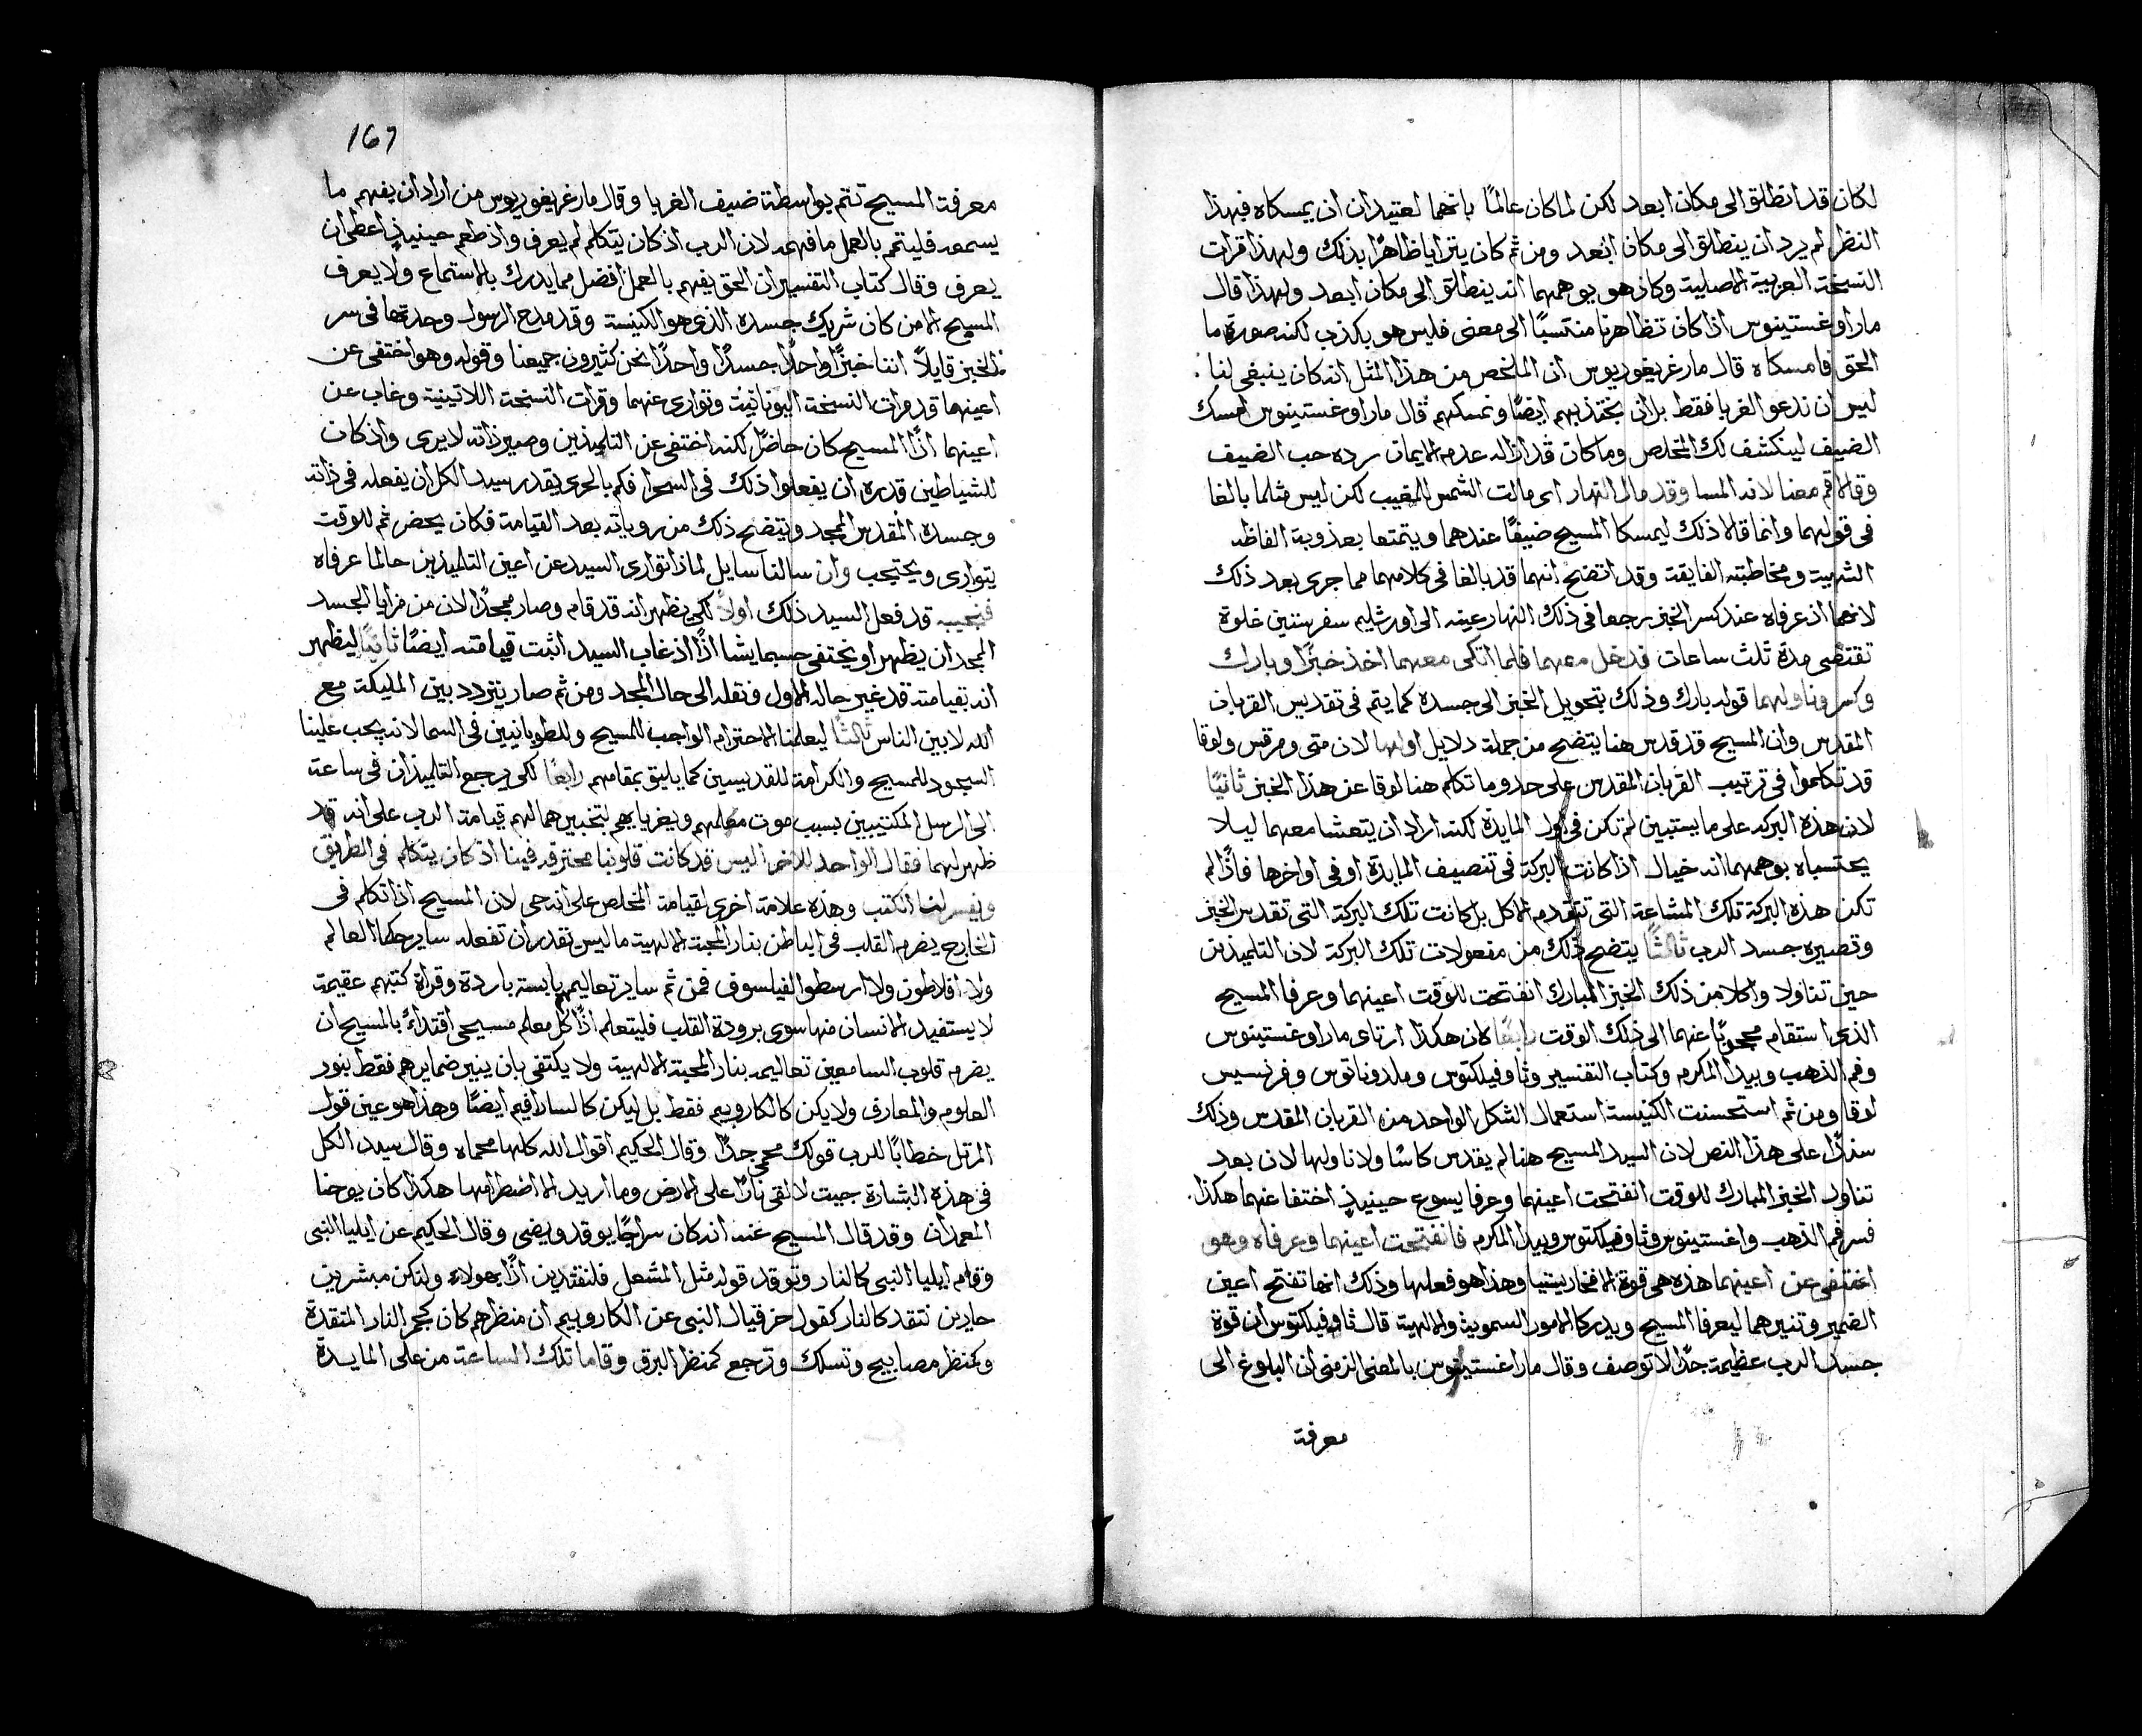 لكان قد انطلق الى مكان ابعد لكن لما كان عالمًا بانهما لعتيدان ان يمسكاه فبهذا
النظر لم يرد ان ينطلق الى مكان ابعد ومن ثم كان يترايا ظاهرًا بذلك ولهذا قرات
النسخة العربية الاصلية وكان هو يوهمهما انه ينطلق الى مكان ابعد ولهذا قال
مار اوغستينوس اذا كان تظاهرنا منتسبًا الى معنى فليس هو بكذب لكنه صورة ما
الحق فامسكاه قال مار غريغوريوس ان الملخص من هذا المثل انه كان ينبغي لنا
ليس ان ندعو الغربا فقط بل ان نجتذبهم ايضًا ونمسكهم قال مار اوغستينوس امسك
الضيف لينكشف لك المخلص وما كان قد ازاله عدم الايمان رده حب الضيف
وقالا اقم معنا لانه المسا وقد مال النهار اى مالت الشمس للمغيب لكن ليس مثلما بالغا
فى قولهما وانما قالا ذلك ليمسكا المسيح ضيفًا عندهما ويتمتعا بعذوبة الفاظه
الشهية ومخاطبته الفايقة وقد اتضح انهما قد بالغا فى كلامهما مما جرى بعد ذلك
لانهما اذ عرفاه عند كسر الخبز رجعا فى ذلك النهار عينه الى اورشليم سفر ستين غلوة
تقتضى مدة ثلث ساعات فدخل معهما فلما اتكى معهما اخذ خبزًا وبارك
وكسر وناولهما قوله بارك وذلك بتحويل الخبز الى جسده كما يتم فى تقديس القربان
المقدس وان المسيح قد قدس هنا يتضح من جملة دلايل اولها لان متى ومرقس ولوقا
قد تكلموا فى ترتيب القربان المقدس على حدو ما تكلم هنا لوقا عن هذا الخبز ثانيًا
لان هذه البركه على ما يستبين لم تكن فى اول المايدة لكنه اراد ان يتعشا معهما ليلا
يحتسباه بوهمهما انه خيال اذا كانت البركة فى تنصيف المايدة او فى اواخرها فاذًا لم
تكن هذه البركة تلك المشاعة التى تتقدم الاكل بل كانت تلك البركة التى تقدس الخبز
وتصيره جسد الرب ثالثًا يتضح ذلك من مفعولات تلك البركة لان التلميذين
حين تناولا واكلا من ذلك الخبز المبارك انفتحت للوقت اعينهما وعرفا المسيح
الذى استقام محجوبًا عنهما الى ذلك الوقت رابعًا لان هكذا ارتاى مار اوغستينوس
وفم الذهب وبيدا المكرم وكتاب التفسير وثاوفيلكتوس وملدوناتوس وفرنسيس
لوقا ومن ثم استحسنت الكنيسة استعمال الشكل الواحد من القربان المقدس وذلك
سندًا على هذا النص لان السيد المسيح هنا لم يقدس كاسًا ولا ناولها لان بعد
تناول الخبز المبارك للوقت انفتحت اعينهما وعرفا يسوع حينيذٍ اختفا عنهما هكذا
فسر فم الذهب واغستينوس وثاوفيلكتوس وبيدا المكرم فانفتحت اعينهما وعرفاه وهو
اختفى عن اعينهما هذه هى قوة الافخارستيا وهذا هو فعلها وذلك انها تفتح اعين
الضمير وتنيرهما ليعرفا المسيح ويدركا الامور السموية والالهية قال ثاوفيلكتوس ان قوة
جسد الرب عظيمة جدًا لا توصف وقال مار اغستينوس بالمعنى الرمزى ان البلوغ الى
معرفة
167
معرفة المسيح تتم بواسطة ضيف الغربا وقال مار غريغوريوس من اراد ان يفهم ما
يسمعه فليتمم بالعمل ما فهمه لان الرب اذ كان يتكلم لم يعرف واذ طعم حينيذٍ اعطى ان
يعرف وقال كتاب التفسير ان الحق يفهم بالعمل افضل مما يدرك بالاستماع ولا يعرف
المسيح الا من كان شريك جسده الذى هو الكنيسة وقد مدح الرسول وحدتها فى سر
الخبز قايلًا اننا خبزًا واحدًا جسدًا واحدًا نحن كثيرون جميعنا وقوله وهو اختفى عن
اعينهما قد قرات النسخة اليونانية وتوارى عنهما وقرات النسخة اللاتينية وغاب عن
اعينهما اذًا المسيح كان حاضرًا لكنه اختفى عن التلميذين وصير ذاته لا يرى واذ كان
للشياطين قدرة ان يفعلوا ذلك فى السحرا فكم بالحرى يقدر سيد الكل ان يفعله فى ذاته
وجسده المقدس الممجد ويتضح ذلك من روياته بعد القيامة فكان يحضر ثم للوقت
يتوارى ويحتجب وان سالنا سايل لماذا توارى السيد عن اعين التلميذين حالما عرفاه
فنجيبه قد فعل السيد ذلك اولًا لكى يظهر انه قد قام وصار ممجدًا لان من مزايا الجسد
الممجد ان يظهر او يختفى حسبما يشا اذًا اذ غاب السيد اثبت قيامته ايضًا ثانيًا ليظهر
انه بقيامته قد غير حاله الاول فنقله الى حال المجد ومن ثم صار يتردد بين المليكة مع
الله لا بين الناس ثالثًا ليعلمنا الاحترام الواجب للمسيح وللطوبانيين فى السما لانه يجب علينا
السجود للمسيح والكرامة للقديسين كما يليق بمقامهم رابعًا لكى يرجع التلميذان فى ساعة
الى الرسل المكتيبين بسبب موت معلمهم ويغريا بهم لتخبيرهما لهم قيامة الرب على انه قد
ظهر لهما فقال الواحد للاخر اليس قد كانت قلوبنا محترقه فينا اذ كان يتكلم فى الطريق
ويفسر لنا الكتب وهذه علامة اخرى لقيامة المخلص على انه حى لان المسيح اذا تكلم فى
الخارج يضرم القلب فى الباطن بنار المحبة الالهية ما ليس تقدر ان تفعله ساير حكما العالم
ولا افلاطون ولا ارسطو الفيلسوف فمن ثم ساير تعاليمهم يابسة باردة وقراة كتبهم عقيمة
لا يستفيد الانسان منها سوى برودة القلب فليتعلم اذًا كل معلم مسيحى اقتداءً بالمسيح ان
يضرم قلوب السامعين تعاليمه بنار المحبة الالهية ولا يكتفى بان ينير ضمايرهم فقط بنور
العلوم والمعارف ولا يكن كالكاروبيم فقط بل ليكن كالسارافيم ايضًا وهذا هو عين قول
المرتل خطابًا للرب قولك محمى جدًا وقال الحكيم اقوال الله كلها محماه وقال سيد الكل
فى هذه البشارة جيت لالقى نارًا على الارض وما اريد الا اضطرامها هكذا كان يوحنا
المعمدان وقد قال المسيح عنه انه كان سراجًا يوقد ويضى وقال الحكيم عن ايليا النبى
وقام ايليا النبى كالنار وتوقد قوله مثل المشعل فلنقتدين اذًا بهولاء ولنكن مبشرين
حارين نتقد كالنار كقول حزقيال النبى عن الكاروبيم ان منظرهم كان كجمر النار المتقدة
وكمنظر مصابيح وتسلك وترجع كمنظر البرق وقاما تلك الساعة من على المايدة